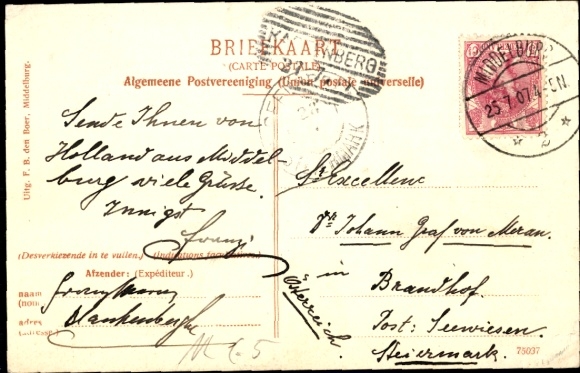 BRIEFKAART
(CARTE POSTALE)
Algemeene Postvereeniging (Union postale universelle)
MIDDELBURG
25.7.07 4-5N.
2
Uitg. F. B. den Boer, Middelburg.
Sende Ihnen von
Holland aus Middel-
burg viele Grüsse.
Innigst
Franz
(Desverkiezende in te vullen.) (Indications facultatives.)
Afzender: (Expéditeur.)
naam
(nom)
adres
Blankenberghe
Sr Excellenz
Dr. Johann Graf von Meran.
in
Brandhof.
Post: Seewiesen.
Steiermark.
Österreich.
75037